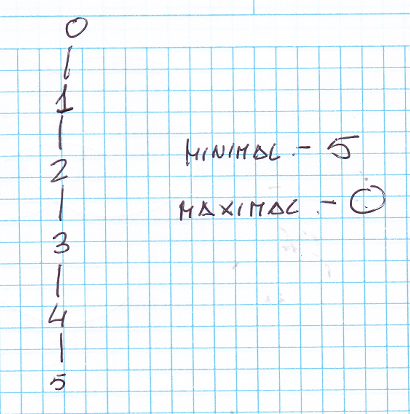 0
|
1
|
2
|
3
|
4
|
5
MINIMAL - 5
MAXIMAL - 0